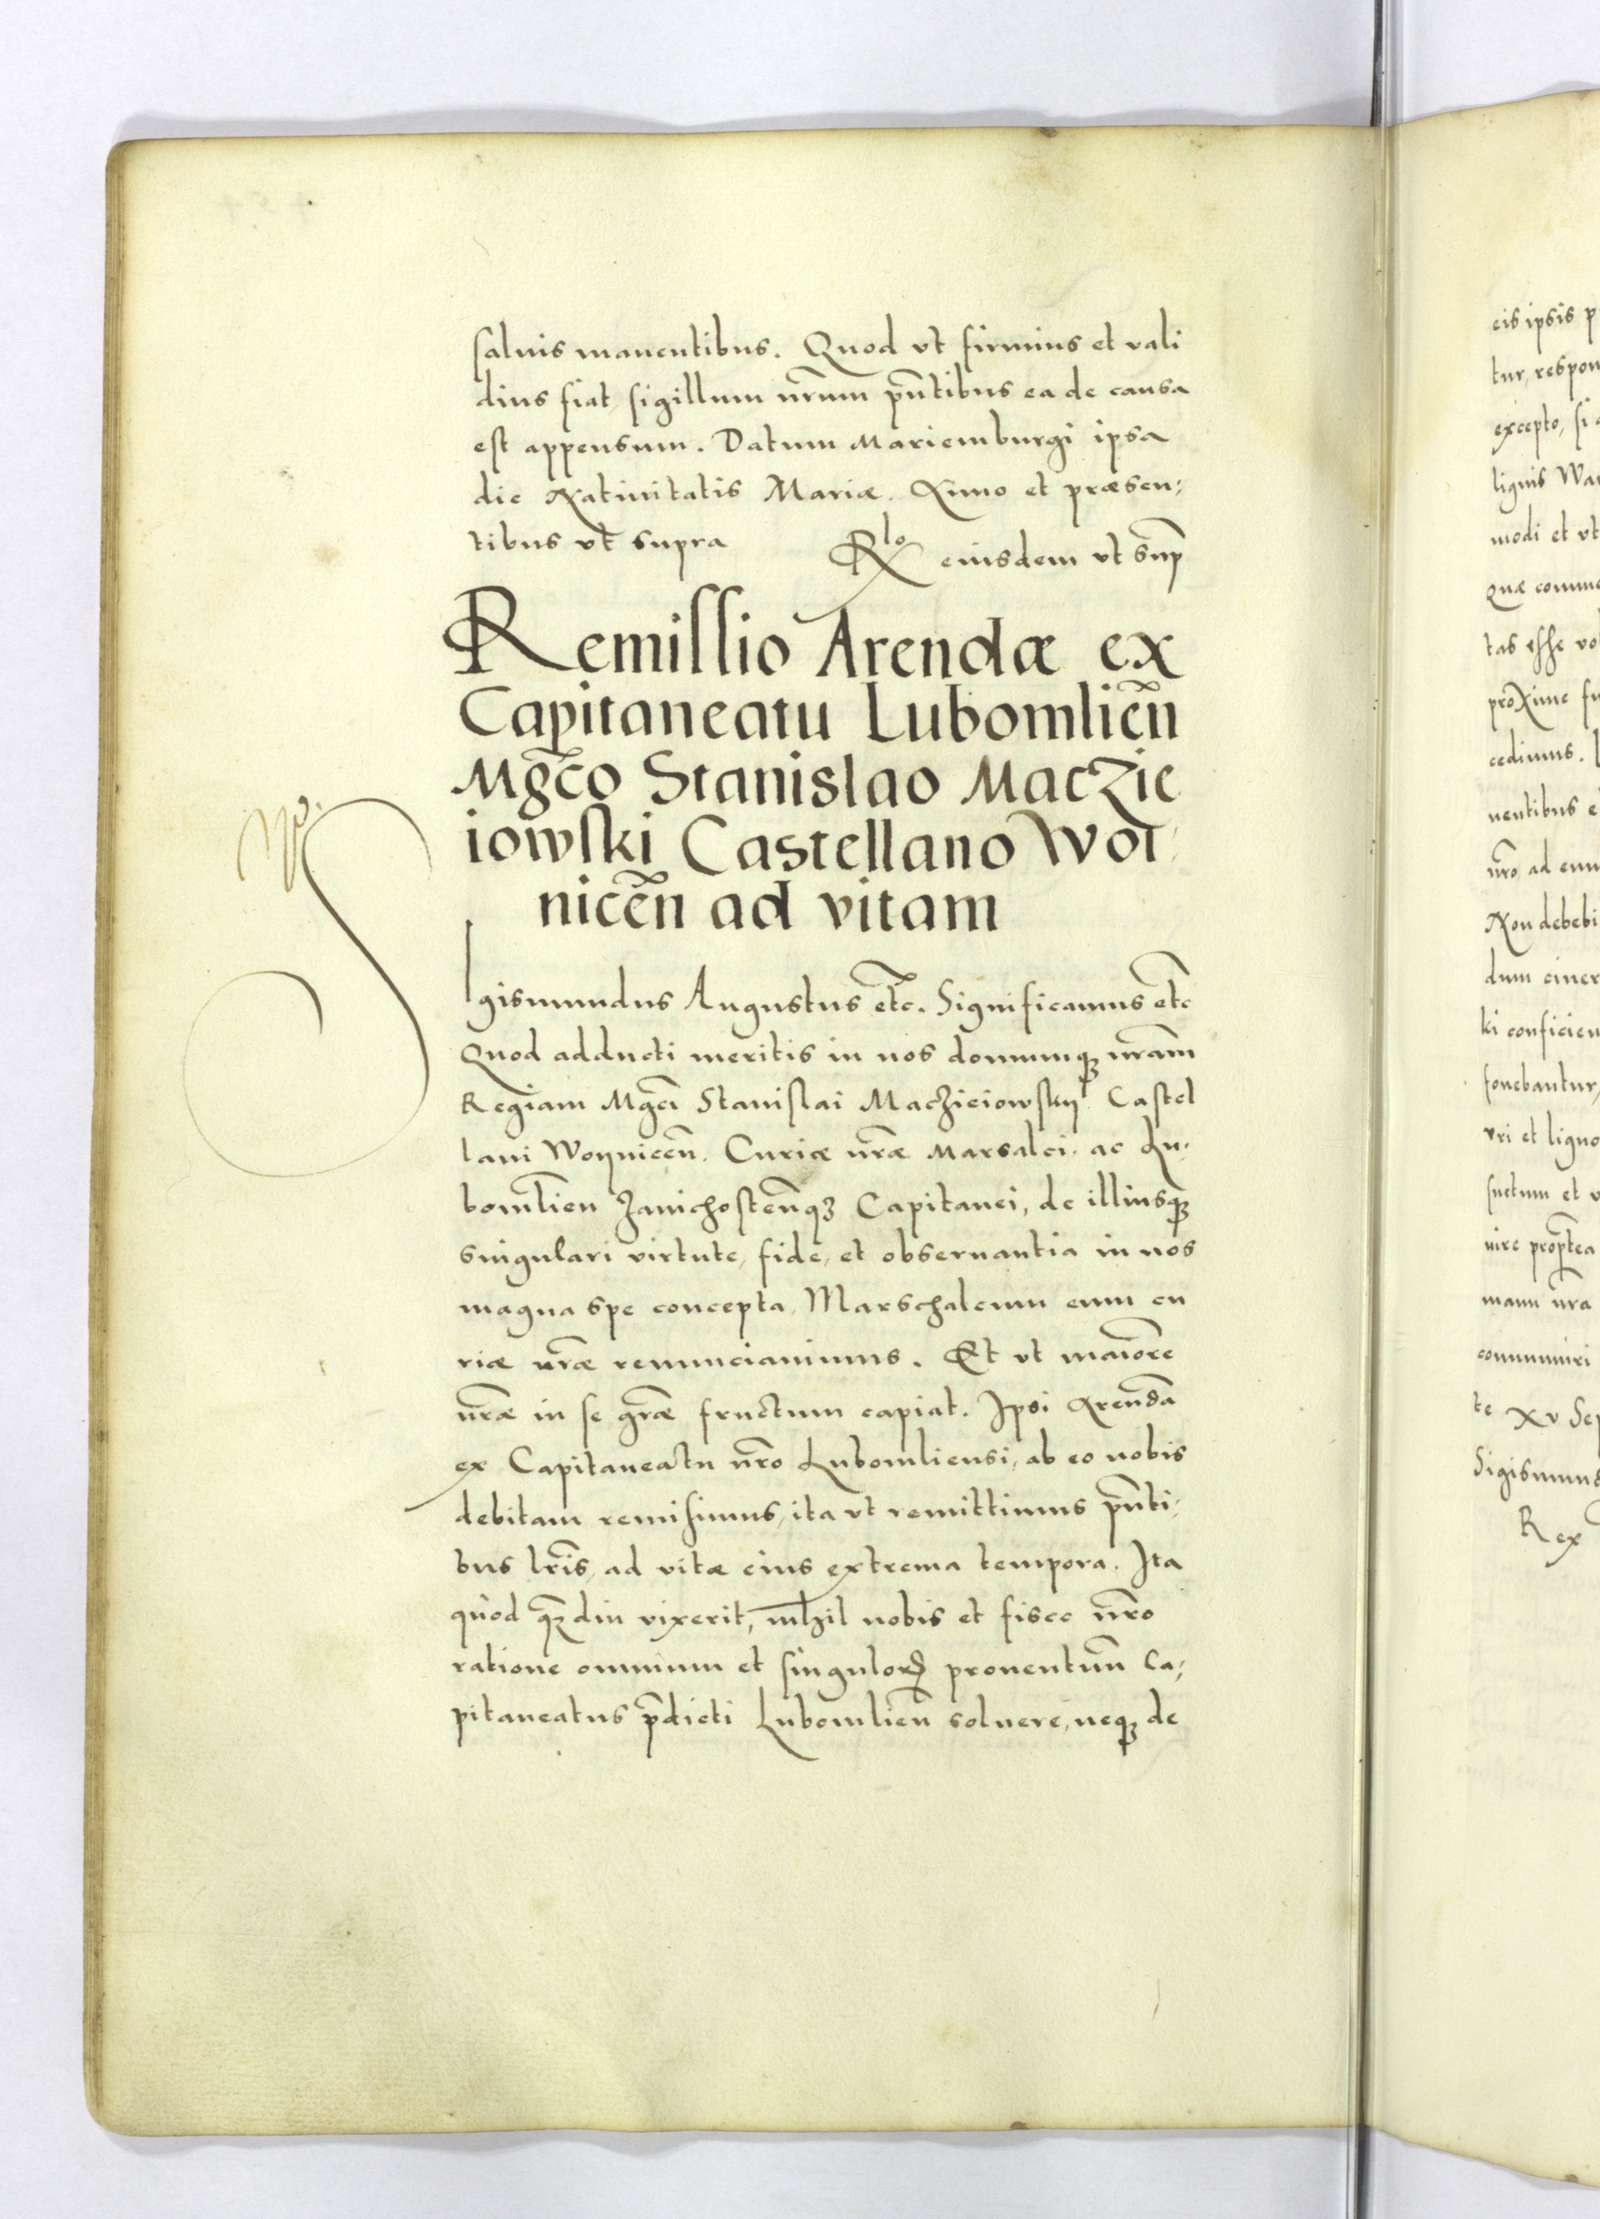 saluis manentibus. Quod vt firmius et vali
dius fiat sigillum nr̃um pñtibus ea de causa
est appensum. Datum Mariemburgi ipsa
die Natiuitatis Mariæ. Anno et præsen,
tibus vt supra
Rlo eiusdem vt sup̃
Remissio Arendæ ex
Capitaneatu Lubomlicẽn
Mgc̃o Stanislao Maczie
iowski Castellano Woi,
nicẽn ad vitam
Sigismundus Augustus etc̃. Significamus etc̃
Quod adducti meritis in nos domumq3 nr̃am
Regiam Mgc̃i Stanislai Macziciowskij Castel
lani Woynicen̄. Curiæ nr̃æ Marsalci. ac Lu,
bomlien̄ Zauichosten̄q3 Capitanei, de illiusq3
singulari virtute, fide, et obseruantia in nos
magna spe concepta, Marschalcum eum cu
riæ nr̃æ renunciauimus. Et vt maiorẽ
nr̃æ in se gr̃æ fructum capiat. Ipsi Arendã
ex Capitaneatu nr̃o Lubomliensi, ab eo nobis
debitam remisimus, ita vt remittimus pñti,
bus lr̃is, ad vitæ eius extrema tempora. Ita
quòd q̃3diu vixerit, nihil nobis et fisco nr̃o
ratione omnium et singulorꝝ prouentuũ Ca,
pitaneatus p̃dicti Lubomlien̄ soluere, neq3 de
eis ipsis
tur, respon
excepto, si
lignis
modi et vt
quæ
tas esse vo
proxime
cedimus.
uentibus
nr̃o, ad
Non debebi
dum
ki
fouebantur,
vri et ligno
suetum et
uire prop̃tea
manu nr̃a
communiri
te xv Sep
Sigismund
Rex